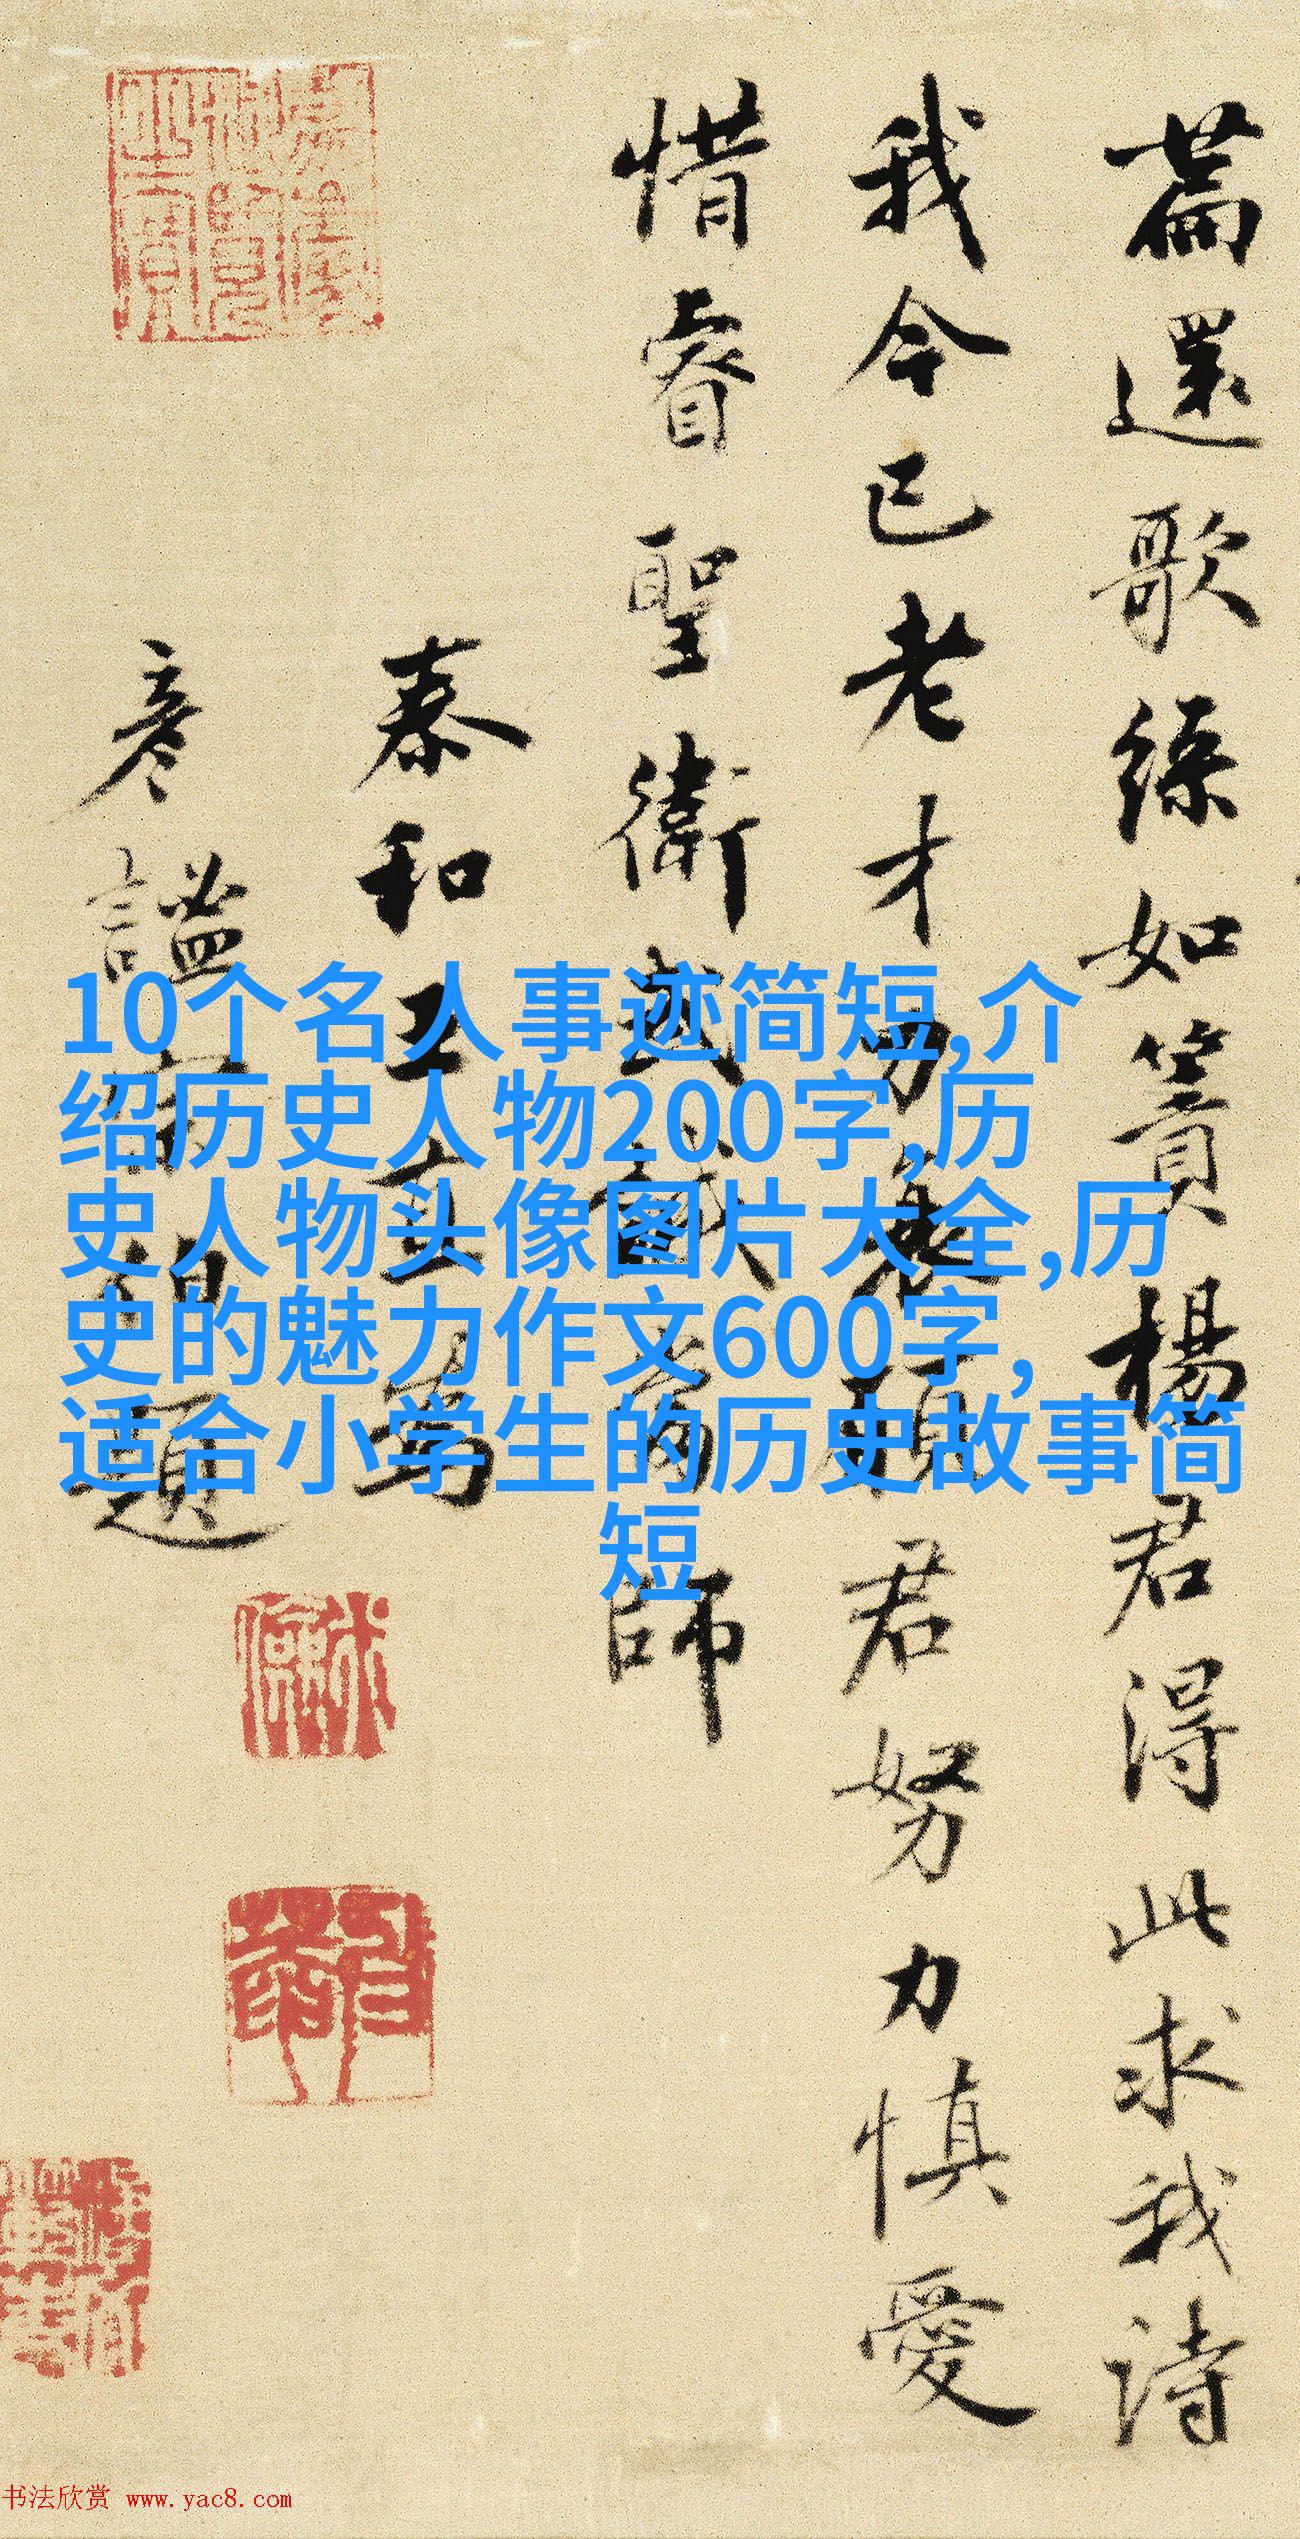 篇還歌綠如簀楊君得此求我詩
我今已老才力衰
君努力慎愛
惜睿聖衛武
師
泰和王直為
彥謐
題
10个名人事迹简短,介
绍历史人物200字,历
史人物头像图片大全,历
史的魅力作文600字,
适合小学生的历史故事简
短
书法欣赏 www.yac8.com